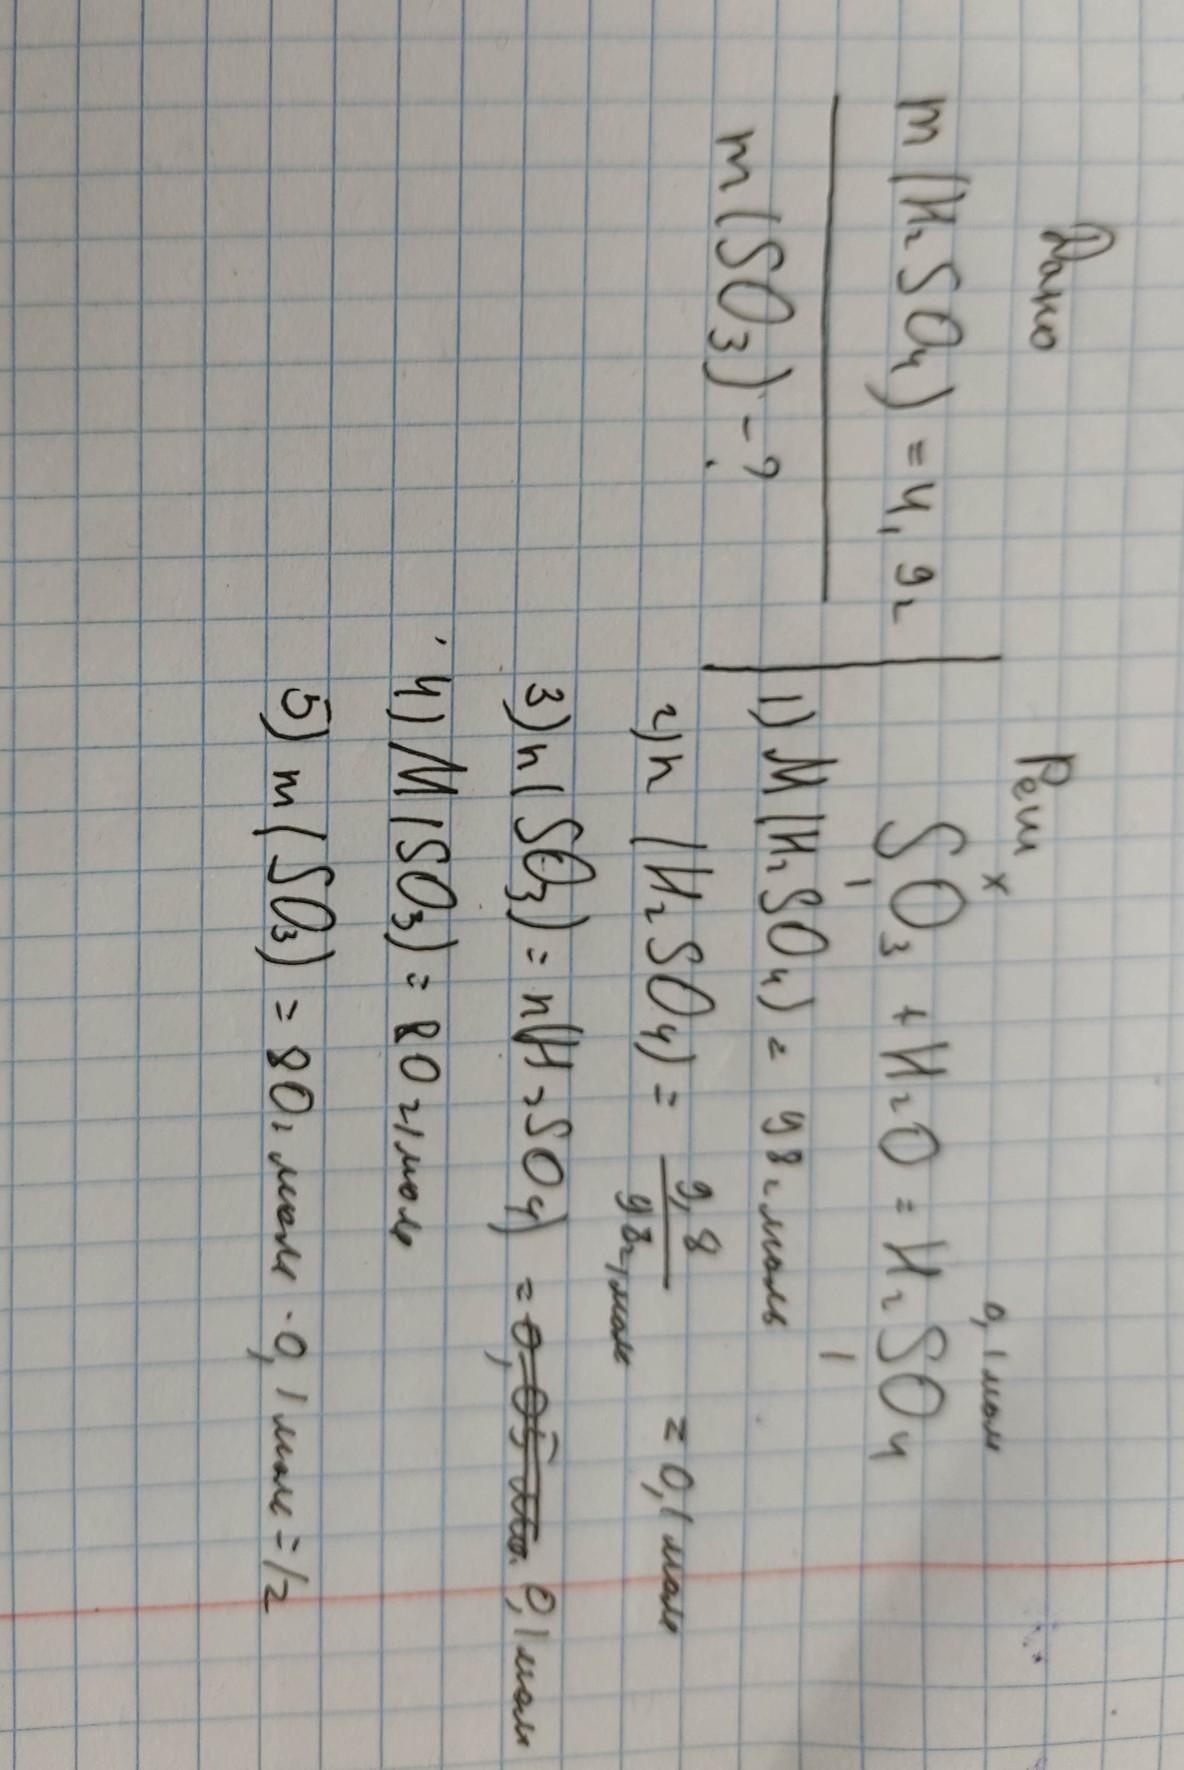 Дано
m(H₂SO₄) = 4,9г
m(SO₃) - ?
Реш
x 0,1 моль
SO₃ + H₂O = H₂SO₄
1 1
1) M(H₂SO₄) = 98 г моль
2) n (H₂SO₄) = 9,8 / 98г/моль = 0,1 моль
3) n(SO₃) = n(H₂SO₄) = 0,05 мо. 0,1 моль
4) M(SO₃) = 80 г/моль
5) m(SO₃) = 80г моль · 0,1 моль =